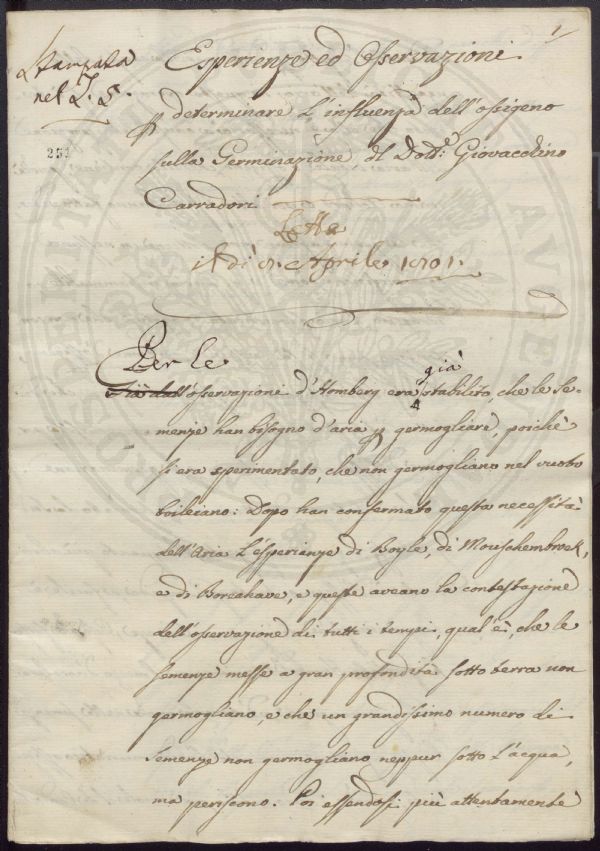 1
Stampata
nel T. 5.
251
Esperienze ed Osservazioni
p determinare l'influenza dell'ossigeno
sulla Germinazione del Dott.e Giovacchino
Carradori
Letta
il dì 8. Aprile 1801.
Per le
già
Già dall'osservazioni d'Homberg era stabilito, che le se-
menze han bisogno d'aria p germogliare, poichè
si era sperimentato, che non germogliano nel vuoto
boileiano: Dopo han confermato questa necessità
dell'Aria l'esperienze di Boyle, di Mouschembroek,
e di Boreahave, e queste aveano la contestazione
dell'osservazione di tutti i tempi, qual'è, che le
semenze messe a gran profondità sotto terra non
germogliano, e che un grandissimo numero di
semenze non germogliano neppur sotto l'acqua,
ma periscono. Poi essendosi più attentamente